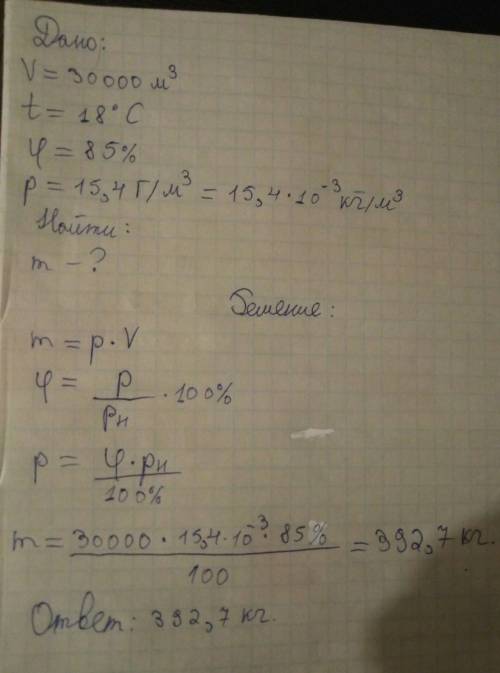 Дано:
V = 30000 м³
t = 18°C
φ = 85%
ρ = 15,4 Г/м³ = 15,4 · 10⁻³ кг/м³
Найти:
m - ?
Решение:
m = ρ · V
φ = ρ/ρн · 100%
ρ = φ · ρн/100%
m = 30000 · 15,4 · 10⁻³ · 85%/100 = 392,7 кг.
Ответ: 392,7 кг.